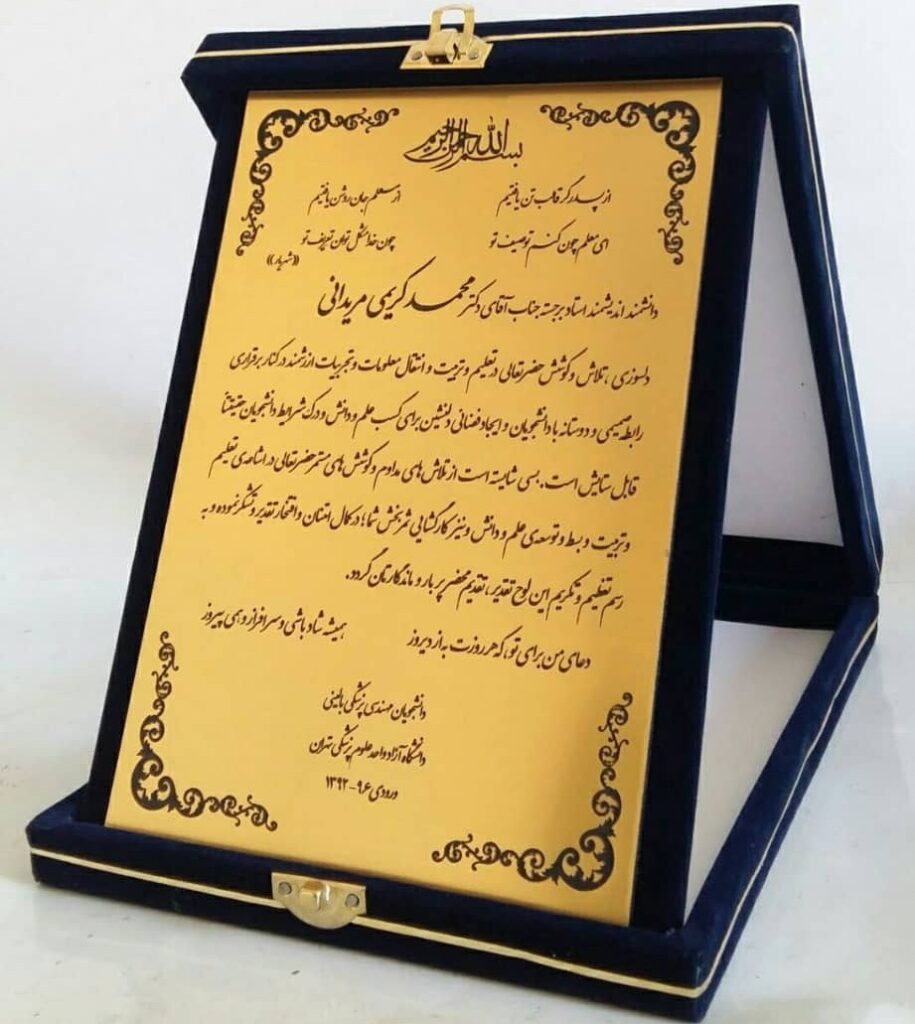 بسم الله الرحمن الرحیم
از پدر گر قالب تن یافتیم از معلم جان روشن یافتیم
ای معلم چون کنم توصیف تو چون خدا مشکل توان تعریف تو
((شهریار))
دانشمند اندیشمند استاد برجسته جناب آقای دکتر محمد کریمی مریدانی
دلسوزی، تلاش و کوشش حضرتعالی در تعلیم و تربیت و انتقال معلومات و تجربیات ارزشمند در کنار برقراری
رابطه صمیمی و دوستانه با دانشجویان و ایجاد فضائی دلنشین برای کسب علم و دانش و درک شرایط دانشجویان حقیقتا
قابل ستایش است. بسی شایسته است از تلاش های مداوم و کوشش های مستمر حضرتعالی در اشاعه ی تعلیم
و تربیت و بسط و توسعه ی علم و دانش و نیز کارگشایی ثمربخش شما؛ در کمال امتنان و افتخار تقدیر و تشکر نموده و به
رسم تعظیم و تکریم این لوح تقدیر، تقدیم محضر پر بار و ماندگارتان گردد.
دعای من برای تو، که هر روزت به از دیروز همیشه شاد باشی و سرافراز و همی پیروز
دانشجویان مهندسی پزشکی بالینی
دانشگاه آزاد واحد علوم پزشکی تهران
ورودی ۹۶-۱۳۹۲